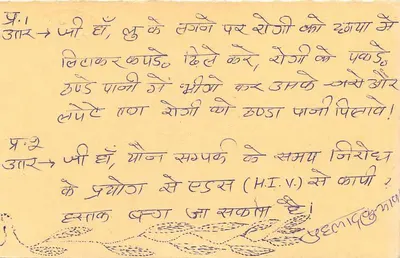 प्र.1
उत्तर → जी हाँ, लु के लगने पर रोगी को छाया में
लिटाकर कपडे ढिले करे, रोगी के पकडे
ठण्डे पानी में भीगो कर उसके गले और
लपेटे एण रोगी को ठण्डा पानी पिलावे!
प्र.2
उत्तर → जी हाँ, यौन सम्पर्क के समय निरोध
के प्रयोग से एडस (H.I.V.) से काफी
हस्तक बचा जा सकता है।